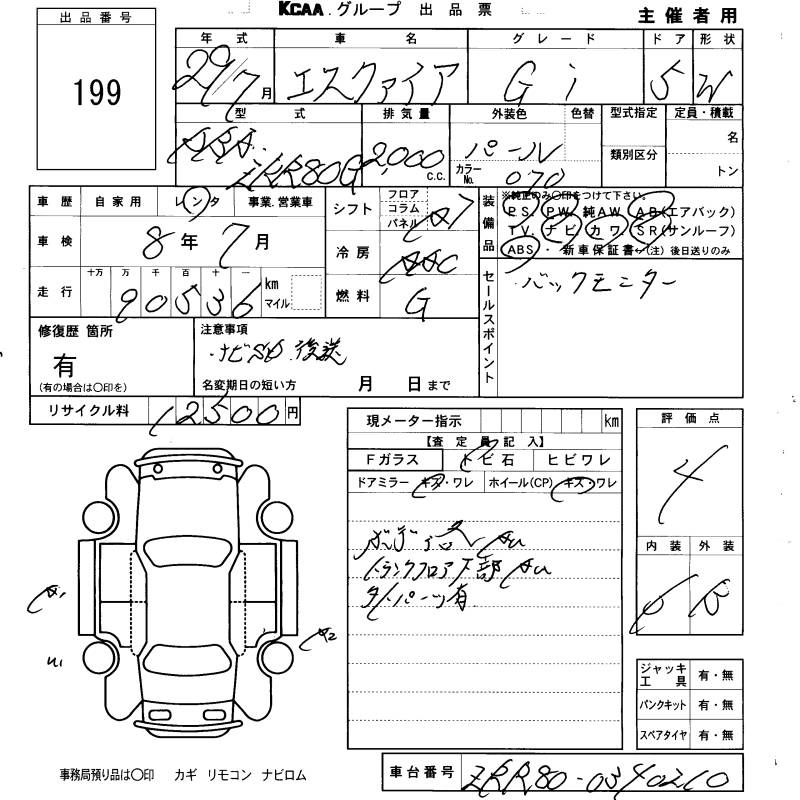 KCAA.グループ 出品票
主催者用
出品番号
199
年式 車名 グレード ドア 形状
29/7月 エスクァイア Gi 5 W
型式 排気量 外装色 色替 型式指定 定員・積載
DBA-
ZRR80G 2,000 C.C. パール カラーNo. 070 類別区分 名
トン
車歴 自家用 レンタ 事業.営業車
車検 8年7月
走行 十万 万 千 百 十 一
90536 km マイル
シフト フロア コラム パネル
冷房 AAC
燃料 G
装備品
※純正のみ〇印をつけて下さい。
PS. PW. 純AW. AB(エアバック)
TV. ナビ. カワ. SR(サンルーフ)
ABS・新車保証書←(注)後日送りのみ
セールスポイント
バックモニター
修復歴 箇所
有
(有の場合は〇印を)
注意事項
ナビSD 後送
名変期日の短い方 月 日まで
リサイクル料 12500円
現メーター指示 km
【査定員記入】
Fガラス トビ石 ヒビワレ
ドアミラー キズ・ワレ ホイール(CP) キズ・ワレ
トランクフロア下部
外パーツ有
評価点
4
内装 外装
B
A1
A2
ジャッキ工具 有・無
パンクキット 有・無
スペアタイヤ 有・無
事務局預り品は〇印 カギ リモコン ナビロム
車台番号 ZRR80-0340210